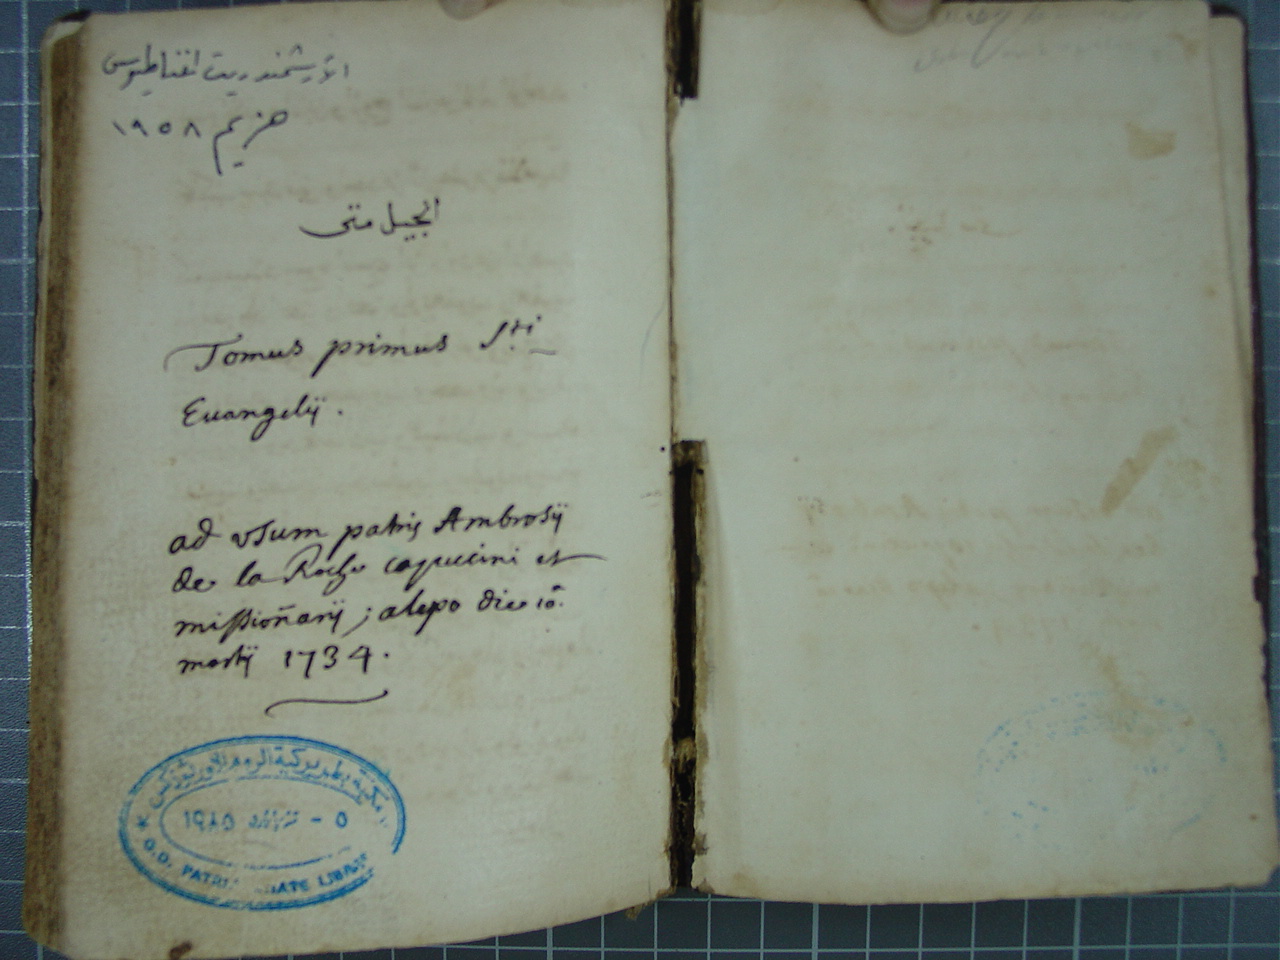 الارشمندريت اغناطيوس
هزيم ١٩٥٨
انجيل متى
Tomus primus Sti
Euangelij.
ad usum patris Ambrosij
de la Roche capuccini et
missioñarij; alepo die 10ª.
martij 1734.
مكتبة بطريركية الروم الاورثوذكس
٥ - ١٩٨٥
G.O. PATRIARCHATE LIBRARY